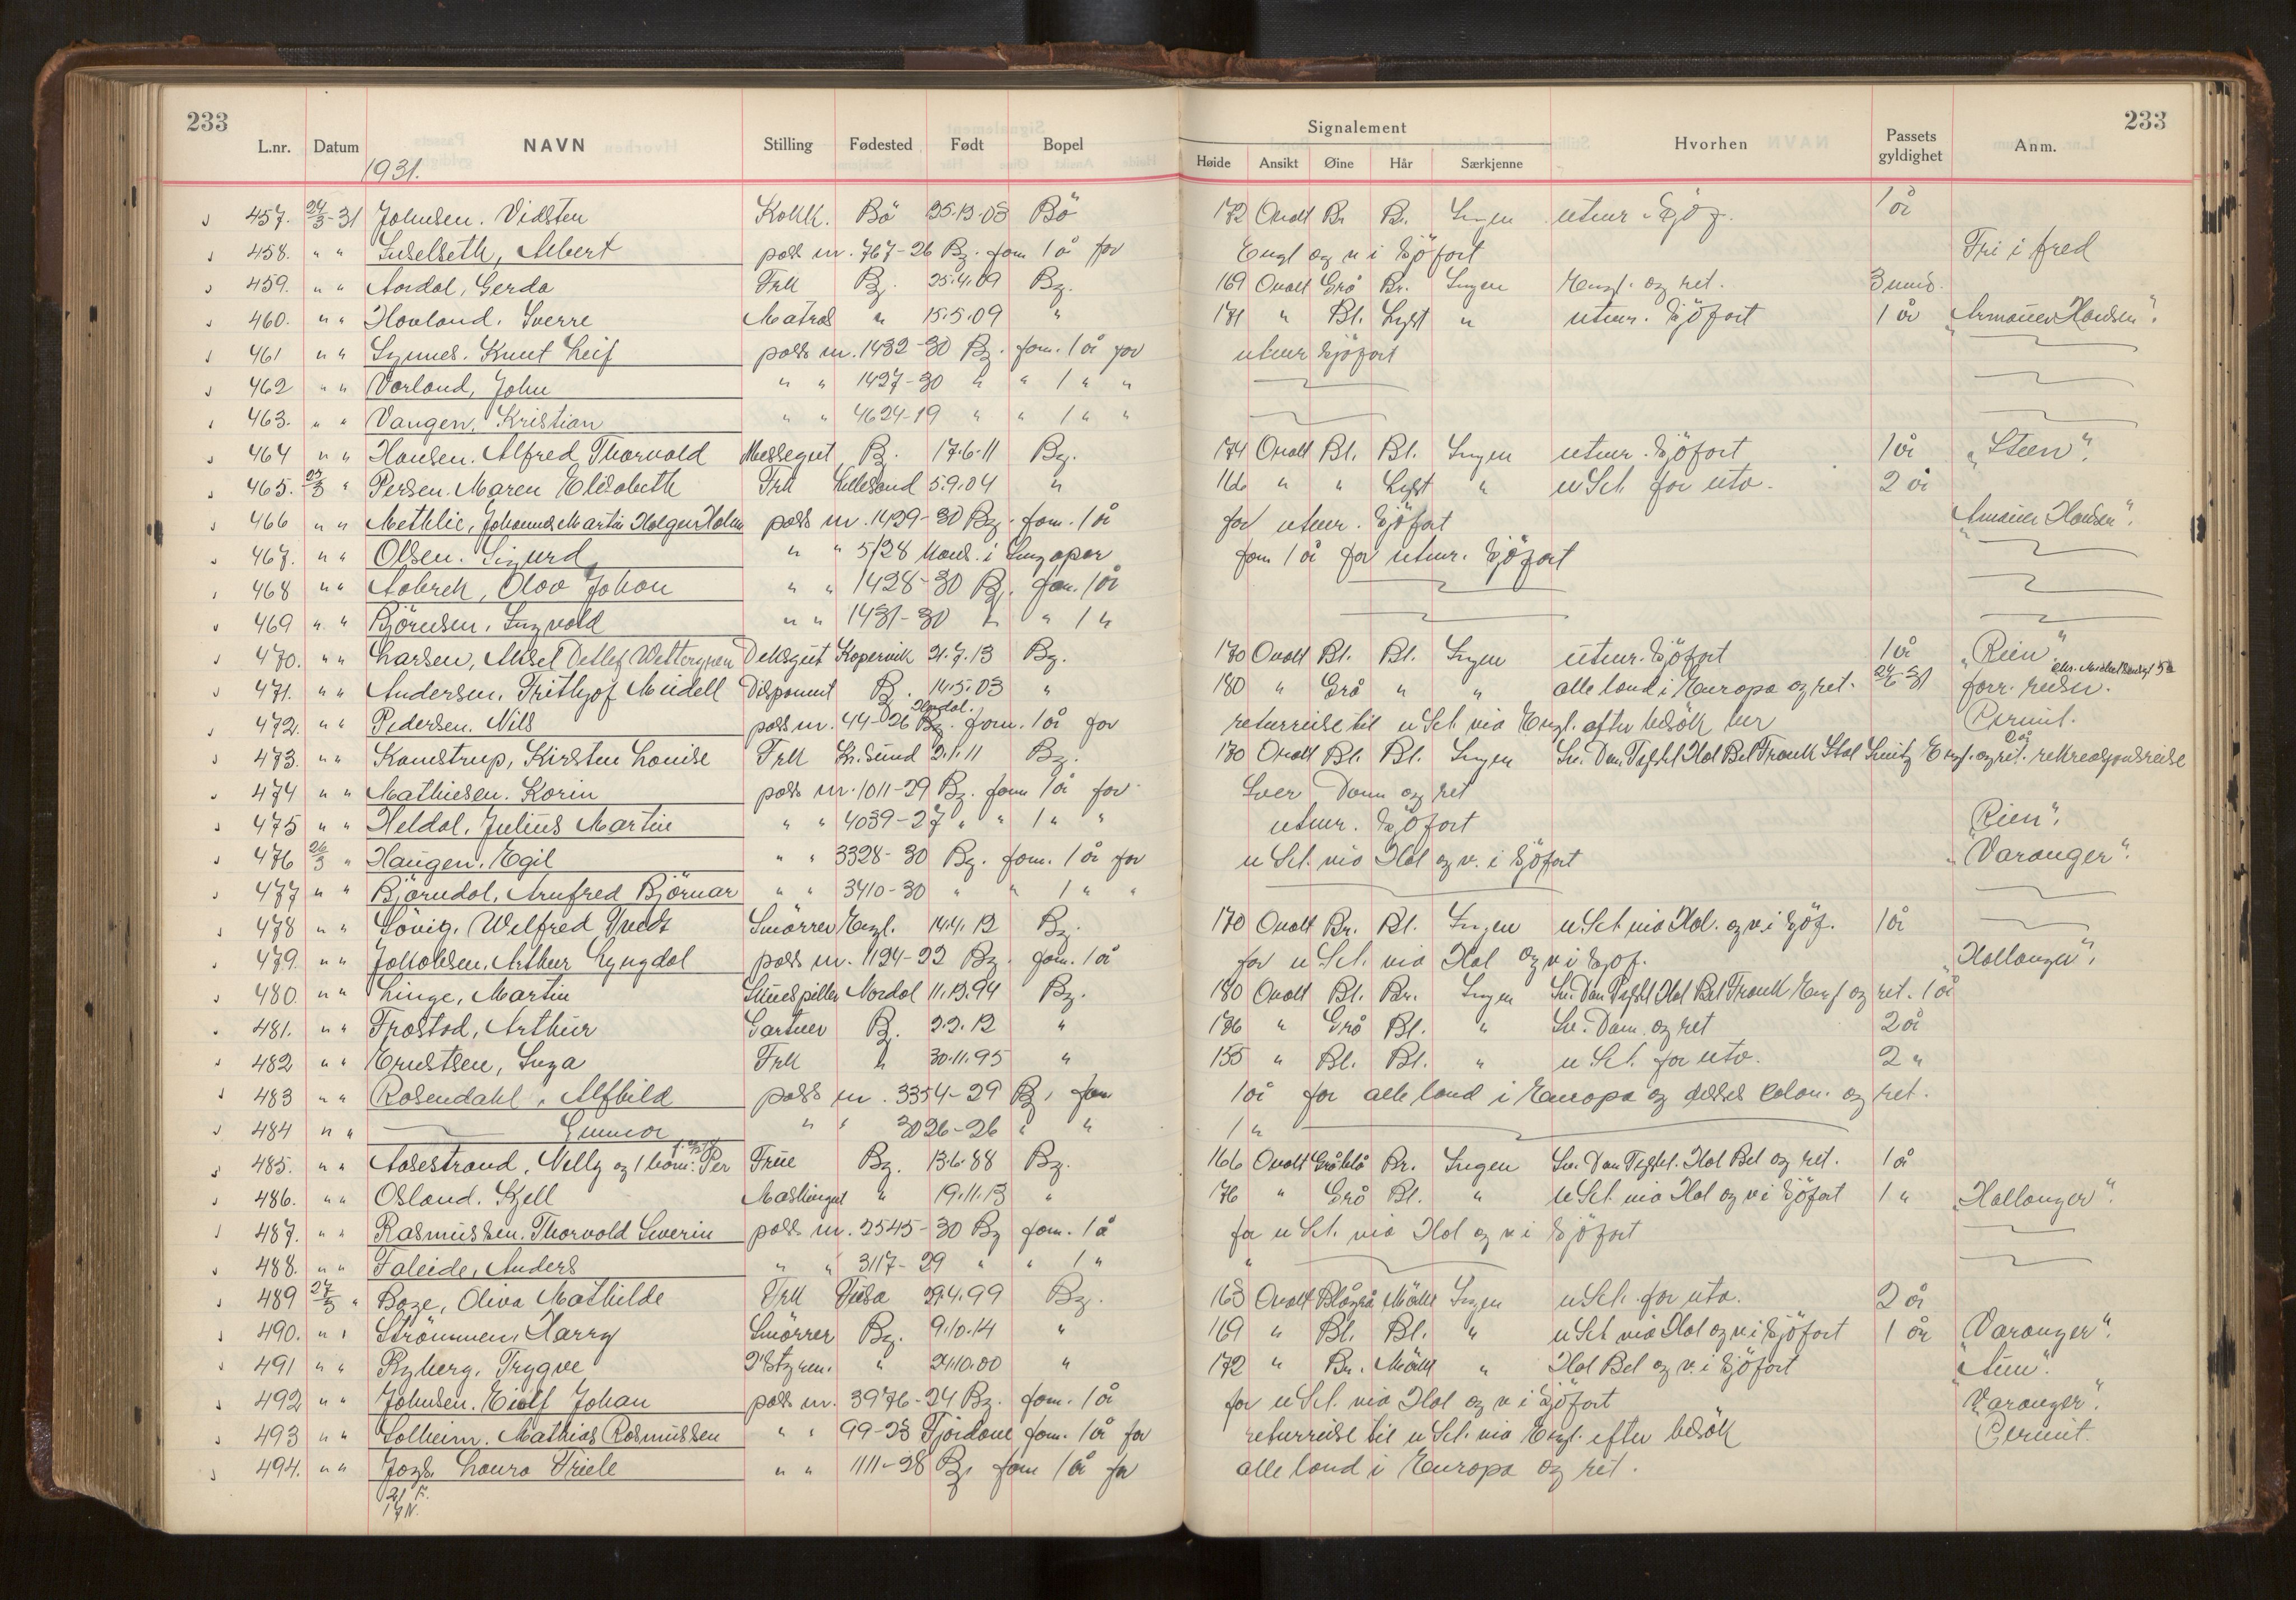 233
233
L.nr. Datum NAVN Stilling Fødested Født Bopel
Signalement
Høide Ansikt Øine Hår Særkjenne Hvorhen Passets gyldighet Anm.
1931.
457. 24/3-31 Johnsen. Vidsten Kokk. Bö 25.12.03 Bö 172 Ovalt Br Br. Ingen utenr. Sjöf. 1 år
458. " " Indselseth, Albert pass nr. 767-26 Bg. forn 1 å for Engl og v i Sjöfart Fri i fred
459. " " Aardal, Gerda Frk Bg. 25.4.09 Bg. 169 Ovalt Grå Br. Ingen Engl. og ret. 3 mnd.
460. " " Hovland. Sverre Matros " 15.5.09 " 171 " Bl. Lyst " utenr. Sjöfart 1 år "Armauer Hansen".
461 " " Synnes. Knut Leif pass nr. 1432-30 Bg. forn. 1 å for utenr Sjöfart
462 " " Vorland, John " " 1427-30 " " 1 " "
463. " " Vangen, Kristian " " 4624-19 " " 1 " "
464 " " Hansen. Alfred Thorvald Messegut B. 17.6.11 Bg. 174 Ovalt Bl. Bl. Ingen utenr. Sjöfart 1 år "Steen".
465. 25/3 " Persen. Maren Elisabeth Frk Lillesand 5.9.04 " 166 " " Lyst " u St. for utv. 2 år
466 " " Methlie, Johannes Martin Holger Holm pass nr. 1429-30 Bg. forn. 1 å for utenr. Sjöfart "Armauer Hansen".
467. " " Olsen. Sigurd " " 5/28 Kons. i Singapor forn 1 å for utenr. Sjöfart
468 " " Aabrek, Olav Johan " " 1428-30 Bg. forn. 1 år
469 " " Björnsen, Ingvald " " 1431-30 " " 1 "
470. " " Larsen, Aksel Detlef Wettergreen Dekksgut Kopervik 21.7.13 Bg. 170 Ovalt Bl. Bl. Ingen utenr. Sjöfart 1 år "Rien"
471. " " Andersen. Frithjof Meidell Disponent B. 14.5.03 " 180 " Grå " " alle land i Europa og ret. 24/6-31 forr. reiser.
472. " " Pedersen. Nils pass nr. 44-26 Hordal. forn. 1 å for returreise til u St. via Engl. efter besök her Permit.
473. " " Kamstrup, Kirsten Louise Frk Kr.sund 2.1.11 Bg. 170 Ovalt Bl. Bl. Ingen Sv. Dan. Tyskl Hol Bel Frank Ital Sveitz Engl. og ret. 2 år rekreasjonsreise
474 " " Mathiesen. Karin pass nr. 1011-29 Bg. forn 1 å for Sver Danm og ret
475 " " Heldal, Julius Martin " " 4039-27 " " 1 " " utenr. Sjöfart "Rien".
476 26/3 " Haugen. Egil " " 3328-30 Bg. forn. 1 år for u St. via Hol og v. i Sjöfart "Varanger".
477 " " Björndal, Arnfred Björnar " " 3410-30 " " 1 " "
478 " " Sövig. Wilfred Tvedt Smörrer Engl. 14.4.12 Bg. 170 Ovalt Br. Bl. Ingen u St via Hol. og v. i Sjöf. 1 år
479. " " Jakobsen. Arthur Lyngdal pass nr. 1124-22 Bg. forn. 1 å for u St. via Hol og v i Sjöf. "Hallanger".
480. " " Linge, Martin Skuespiller Nordal 11.12.94 Bg. 180 Ovalt Bl. Br. Ingen Sv. Dan Tyskl Hol Bel Frank Engl og ret. 1 år
481. " " Frostad, Arthur Gartner B. 2.2.12 " 176 " Grå Bl. " Sv. Dan. og ret 2 år
482 " " Ernstsen, Inga Frk " 30.11.95 " 155 " Bl. Bl. " u St. for utv. 2 "
483 " " Rosendahl, Alfhild pass nr. 3354-29 Bg. forn 1 år for alle land i Europa og disses kolon. og ret.
484 " " Gunvor " " 3026-26 " " 1 "
485. " " Aasestrand, Nelly og 1 barn: Per Frue Bg. 13.6.88 Bg. 166 Ovalt Gråblå Br. Ingen Sv. Dan Tyskl. Hol Bel og ret. 1 å
486. " " Osland. Kjell Maskingut " 19.11.13 " 176 " Grå Bl. " u St. via Hol og v i Sjöfart 1 " "Hallanger".
487. " " Rasmussen. Thorvald Severin pass nr. 2545-30 Bg forn. 1 å for u St. via Hol og v i Sjöfart
488. " " Faleide, Anders " " 3117-29 " " 1 " "
489 27/3 " Boge, Oliva Mathilde Frk Fusa 29.4.99 Bg. 163 Ovalt Blågrå Mörkt Ingen u St. for utv. 2 år
490. " " Strömmen, Harry Smörrer Bg. 9.10.14 " 169 " Bl. Bl. " u St via Hol og v i Sjöfart 1 år "Varanger".
491 " " Ryberg, Trygve 2' Styrm. " 24.10.00 " 172 " Br. Mörkt " Hol Bel og v. i Sjöfart
492 " " Johnsen. Eiolf Johan pass nr. 3976-24 Bg. forn. 1 å for u St. via Hol og v i Sjöfart "Varanger".
493 " " Solheim. Mathias Rasmussen " " 99-23 Fjordane forn. 1 år for returreise til u St. via Engl. efter besök Permit.
494. " " Joys. Laura Friele " " 1111-28 Bg. forn 1 år for alle land i Europa og ret.
21 F.
17 N.